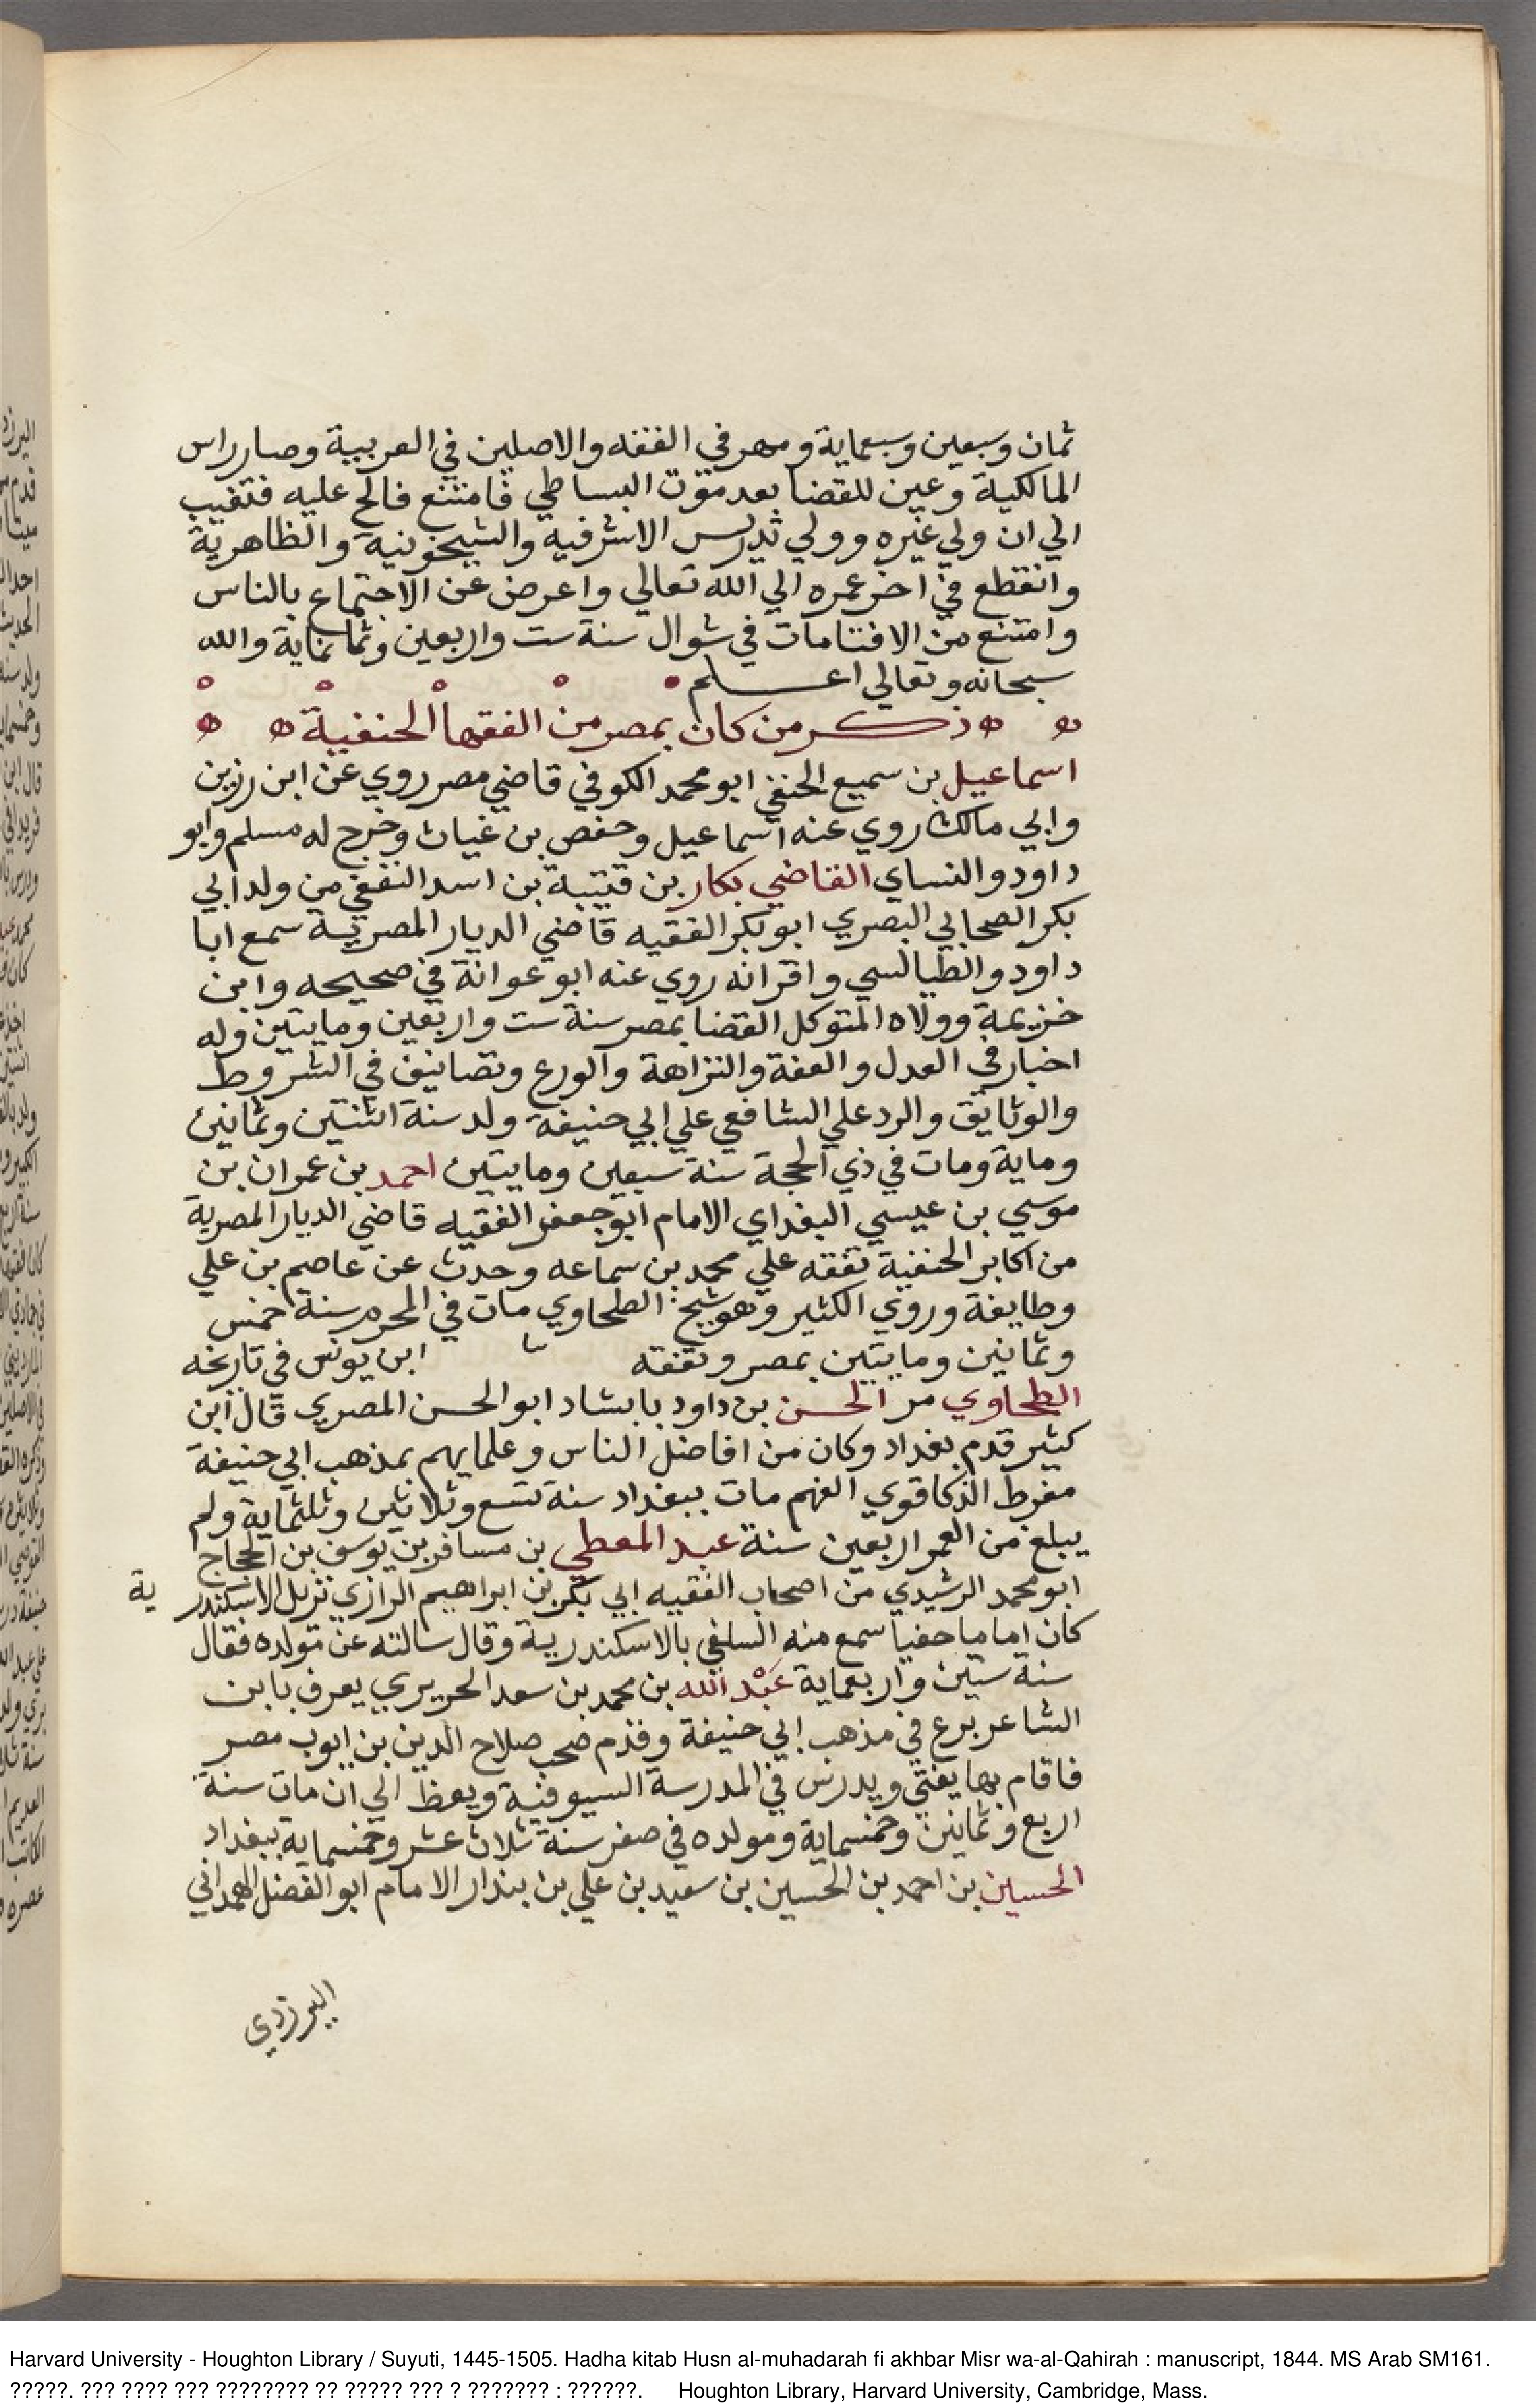 ثمان وسبعين وسبعماية ومهر في الفقه والاصلين في العربية وصار راس
المالكية وعين للقضا بعد موت البساطي فامتنع فالح عليه فتغيب
الي ان ولي غيره وولي تدريس الاشرفيه والشيخونية والظاهرية
وانقطع في اخر عمره الي الله تعالي واعرض عن الاجتماع بالناس
وامتنع من الافتامات في شوال سنة ست واربعين وثمانماية والله
سبحانه وتعالي اعلم
ذكر من كان بمصر من الفقها الحنفية
اسماعيل بن سميع الحنفي ابو محمد الكوفي قاضي مصر روي عن ابن رزين
وابي مالك روي عنه اسماعيل وحفص بن غياث وخرج له مسلم وابو
داود والنساي القاضي بكار بن قتيبة بن اسد الثقفي من ولد ابي
بكر الصحابي البصري ابو بكر الفقيه قاضي الديار المصرية سمع ابا
داود والطيالسي واقرانه روي عنه ابو عوانة في صحيحه وابن
خزيمة وولاه المتوكل القضا بمصر سنة ست واربعين ومايتين وله
اخبار في العدل والعفة والنزاهة والورع وتصانيف في الشروط
والوثايق والرد علي الشافعي علي ابي حنيفة ولد سنة اثنتين وثمانين
وماية ومات في ذي الحجة سنة سبعين ومايتين احمد بن عمران بن
موسي بن عيسي البغداي الامام ابو جعفر الفقيه قاضي الديار المصرية
من اكابر الحنفية تفقه علي محمد بن سماعه وحدث عن عاصم بن علي
وطايفة وروي الكثير وهو شيخ الطحاوي مات في المحرم سنة خمس
وثمانين ومايتين بمصر وثقفه ابن يونس في تاريخه
الطحاوي مر الحسن بن داود بابشاد ابو الحسن المصري قال ابن
كثير قدم بغداد وكان من افاضل الناس وعلمايهم بمذهب ابي حنيفة
مفرط الذكا قوي الفهم مات ببغداد سنة تسع وثلاثين وثلثماية ولم
يبلغ من العمر اربعين سنة عبد المعطي بن مسافر بن يوسف بن الحجاج
ابو محمد الرشيدي من اصحاب الفقيه ابي بكر بن ابراهيم الرازي نزيل الاسكندرية
كان اماما حفيا سمع منه السلفي بالاسكندرية وقال سالته عن مولده فقال
سنة ستين واربعماية عبد الله بن محمد بن سعد الحريري يعرف بابن
الشاعر برع في مذهب ابي حنيفة وقدم صحب صلاح الدين بن ايوب مصر
فاقام بها يفتي ويدرس في المدرسة السيوفية ويعظ الي ان مات سنة
اربع وثمانين وخمسماية ومولده في صفر سنة ثلاث عشر وخمسماية ببغداد
الحسين بن احمد بن الحسين بن سعيد بن علي بن بندار الامام ابو الفضل الهمداني
اليرزدي
Harvard University - Houghton Library / Suyuti, 1445-1505. Hadha kitab Husn al-muhadarah fi akhbar Misr wa-al-Qahirah : manuscript, 1844. MS Arab SM161.
?????. ??? ???? ??? ???????? ?? ????? ??? ? ??????? : ??????. Houghton Library, Harvard University, Cambridge, Mass.